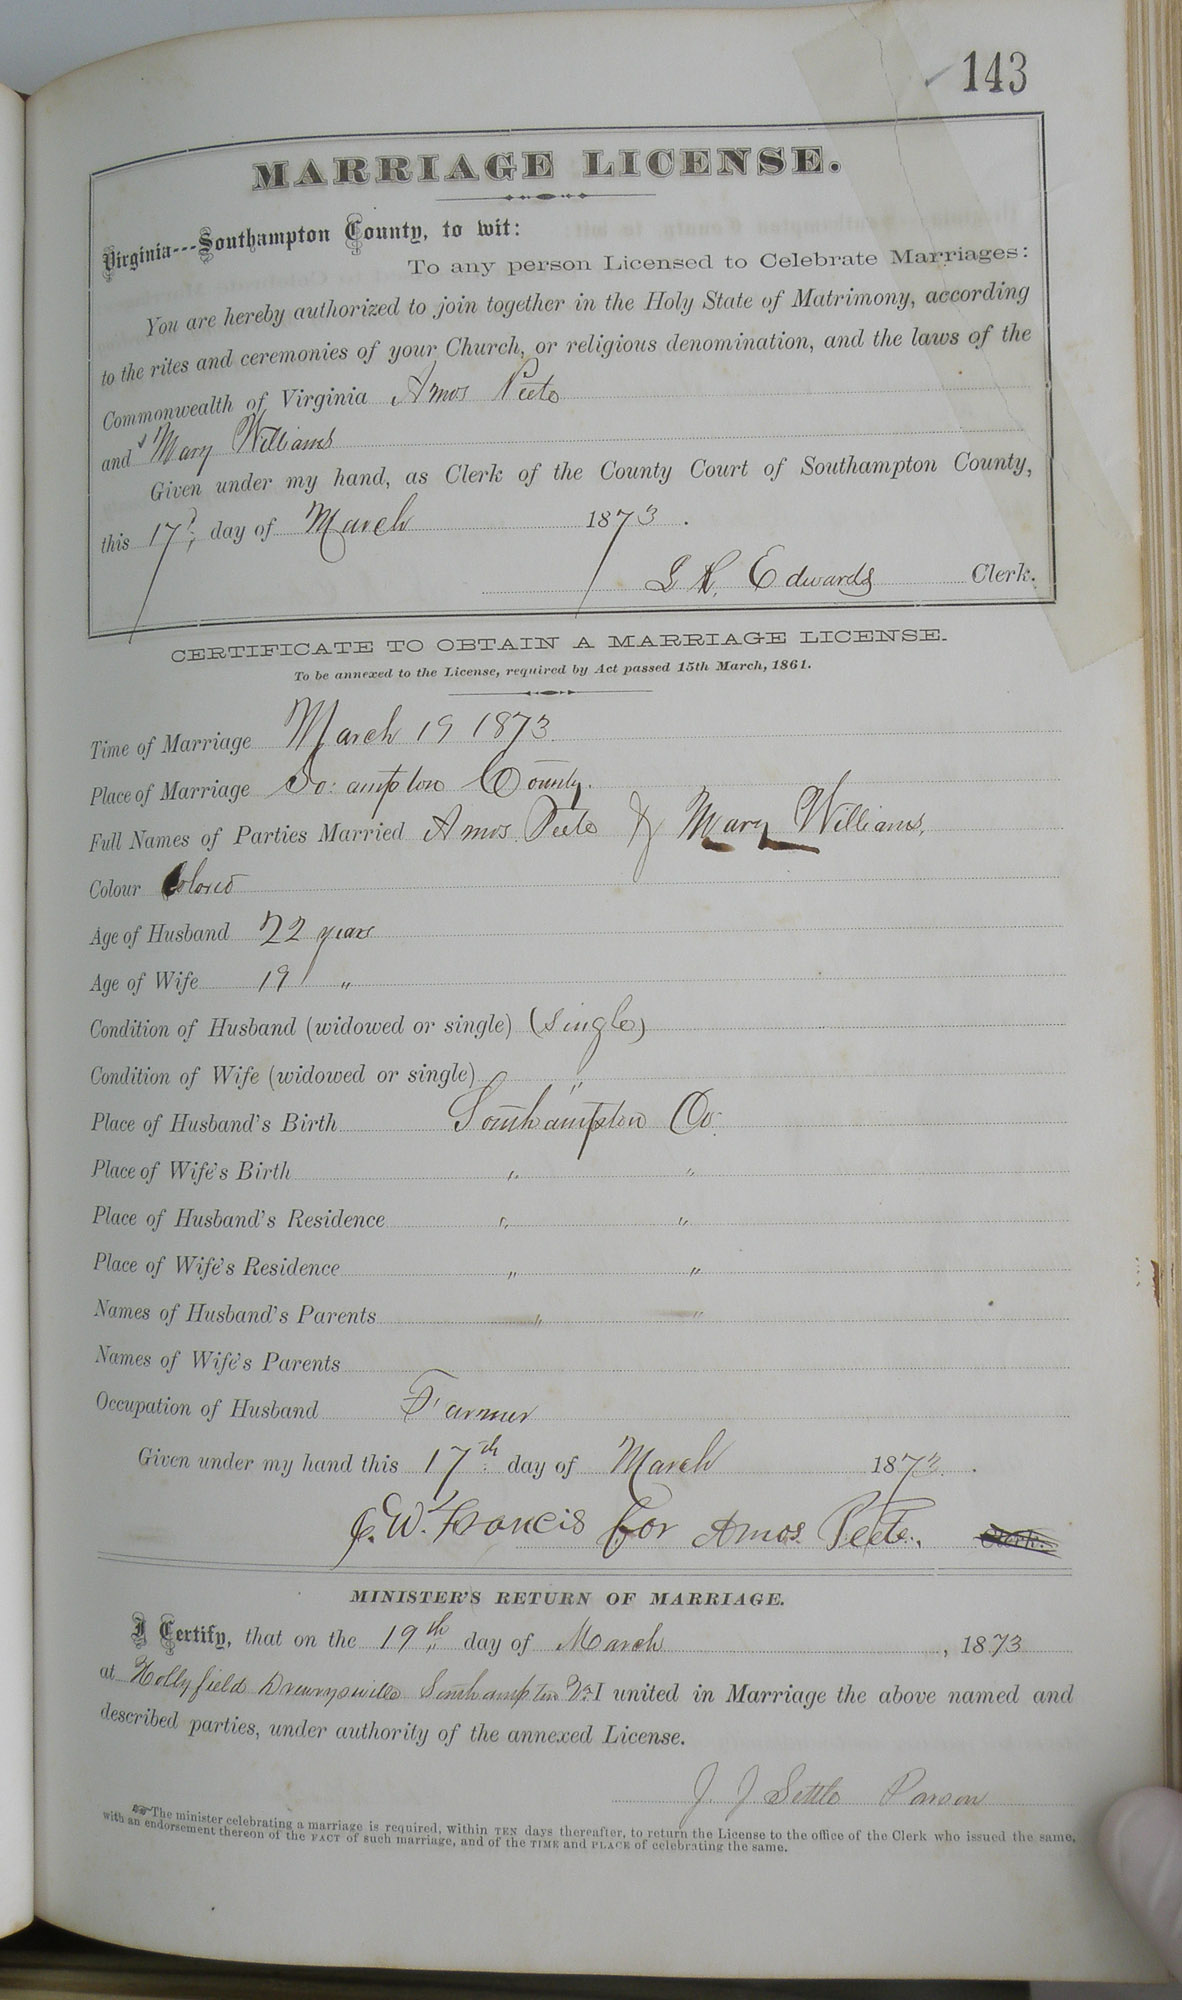 143
MARRIAGE LICENSE.
Virginia---Southampton County, to wit:
To any person Licensed to Celebrate Marriages:
You are hereby authorized to join together in the Holy State of Matrimony, according
to the rites and ceremonies of your Church, or religious denomination, and the laws of the
Commonwealth of Virginia Amos Peete
and Mary Williams
Given under my hand, as Clerk of the County Court of Southampton County,
this 17th day of March 1873.
L R. Edwards Clerk.
CERTIFICATE TO OBTAIN A MARRIAGE LICENSE.
To be annexed to the License, required by Act passed 15th March, 1861.
Time of Marriage March 19 1873.
Place of Marriage So:ampton County.
Full Names of Parties Married Amos Peete & Mary Williams.
Colour Colored
Age of Husband 22 years
Age of Wife 19 "
Condition of Husband (widowed or single) (single)
Condition of Wife (widowed or single) "
Place of Husband's Birth Southampton Co.
Place of Wife's Birth " "
Place of Husband's Residence " "
Place of Wife's Residence " "
Names of Husband's Parents " "
Names of Wife's Parents
Occupation of Husband Farmer
Given under my hand this 17th day of March 1873.
J. W. Francis for Amos Peete. Clerk.
MINISTER'S RETURN OF MARRIAGE.
I Certify, that on the 19th day of March, 1873
at Hollyfield Drewrysville Southampton Va. I united in Marriage the above named and
described parties, under authority of the annexed License.
J. J Settle Parson
The minister celebrating a marriage is required, within TEN days thereafter, to return the License to the office of the Clerk who issued the same,
with an endorsement thereon of the FACT of such marriage, and of the TIME and PLACE of celebrating the same.